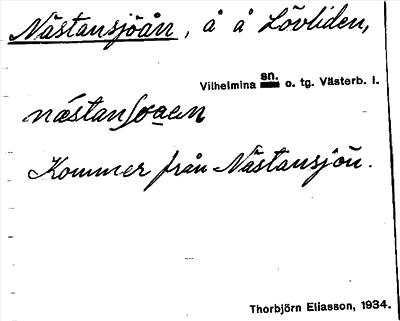 Nästansjöån, å å Lövliden,
Vilhelmina sn. o. tg. Västerb. l.
Kommer från Nästansjön.
Thorbjörn Eliasson, 1934.